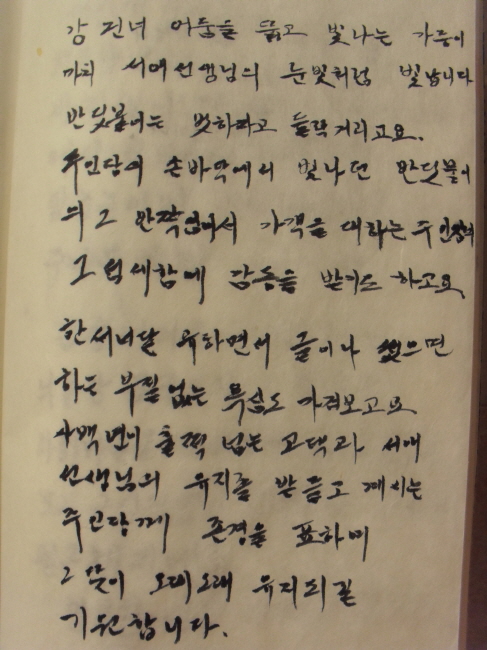 강 건너 어둠을 뚫고 빛나는 가등이
마치 서애선생님의 눈빛처럼 빛납니다
반딧불이는 벗하라고 들락거리고요.
주인당의 손바닥에서 빛나던 반딧불이
의 그 반짝임에서 가객을 대하는 주인장의
그 섬세함에 감동을 받기도 하고요
한 서너달 유하면서 글이나 썼으면
하는 부질없는 욕심도 가져보고요
사백년이 훌쩍 넘는 고택과 서애
선생님의 유지를 받들고 계시는
주인당께 존경을 표하며
그 뜻이 오래오래 유지되길
기원합니다.